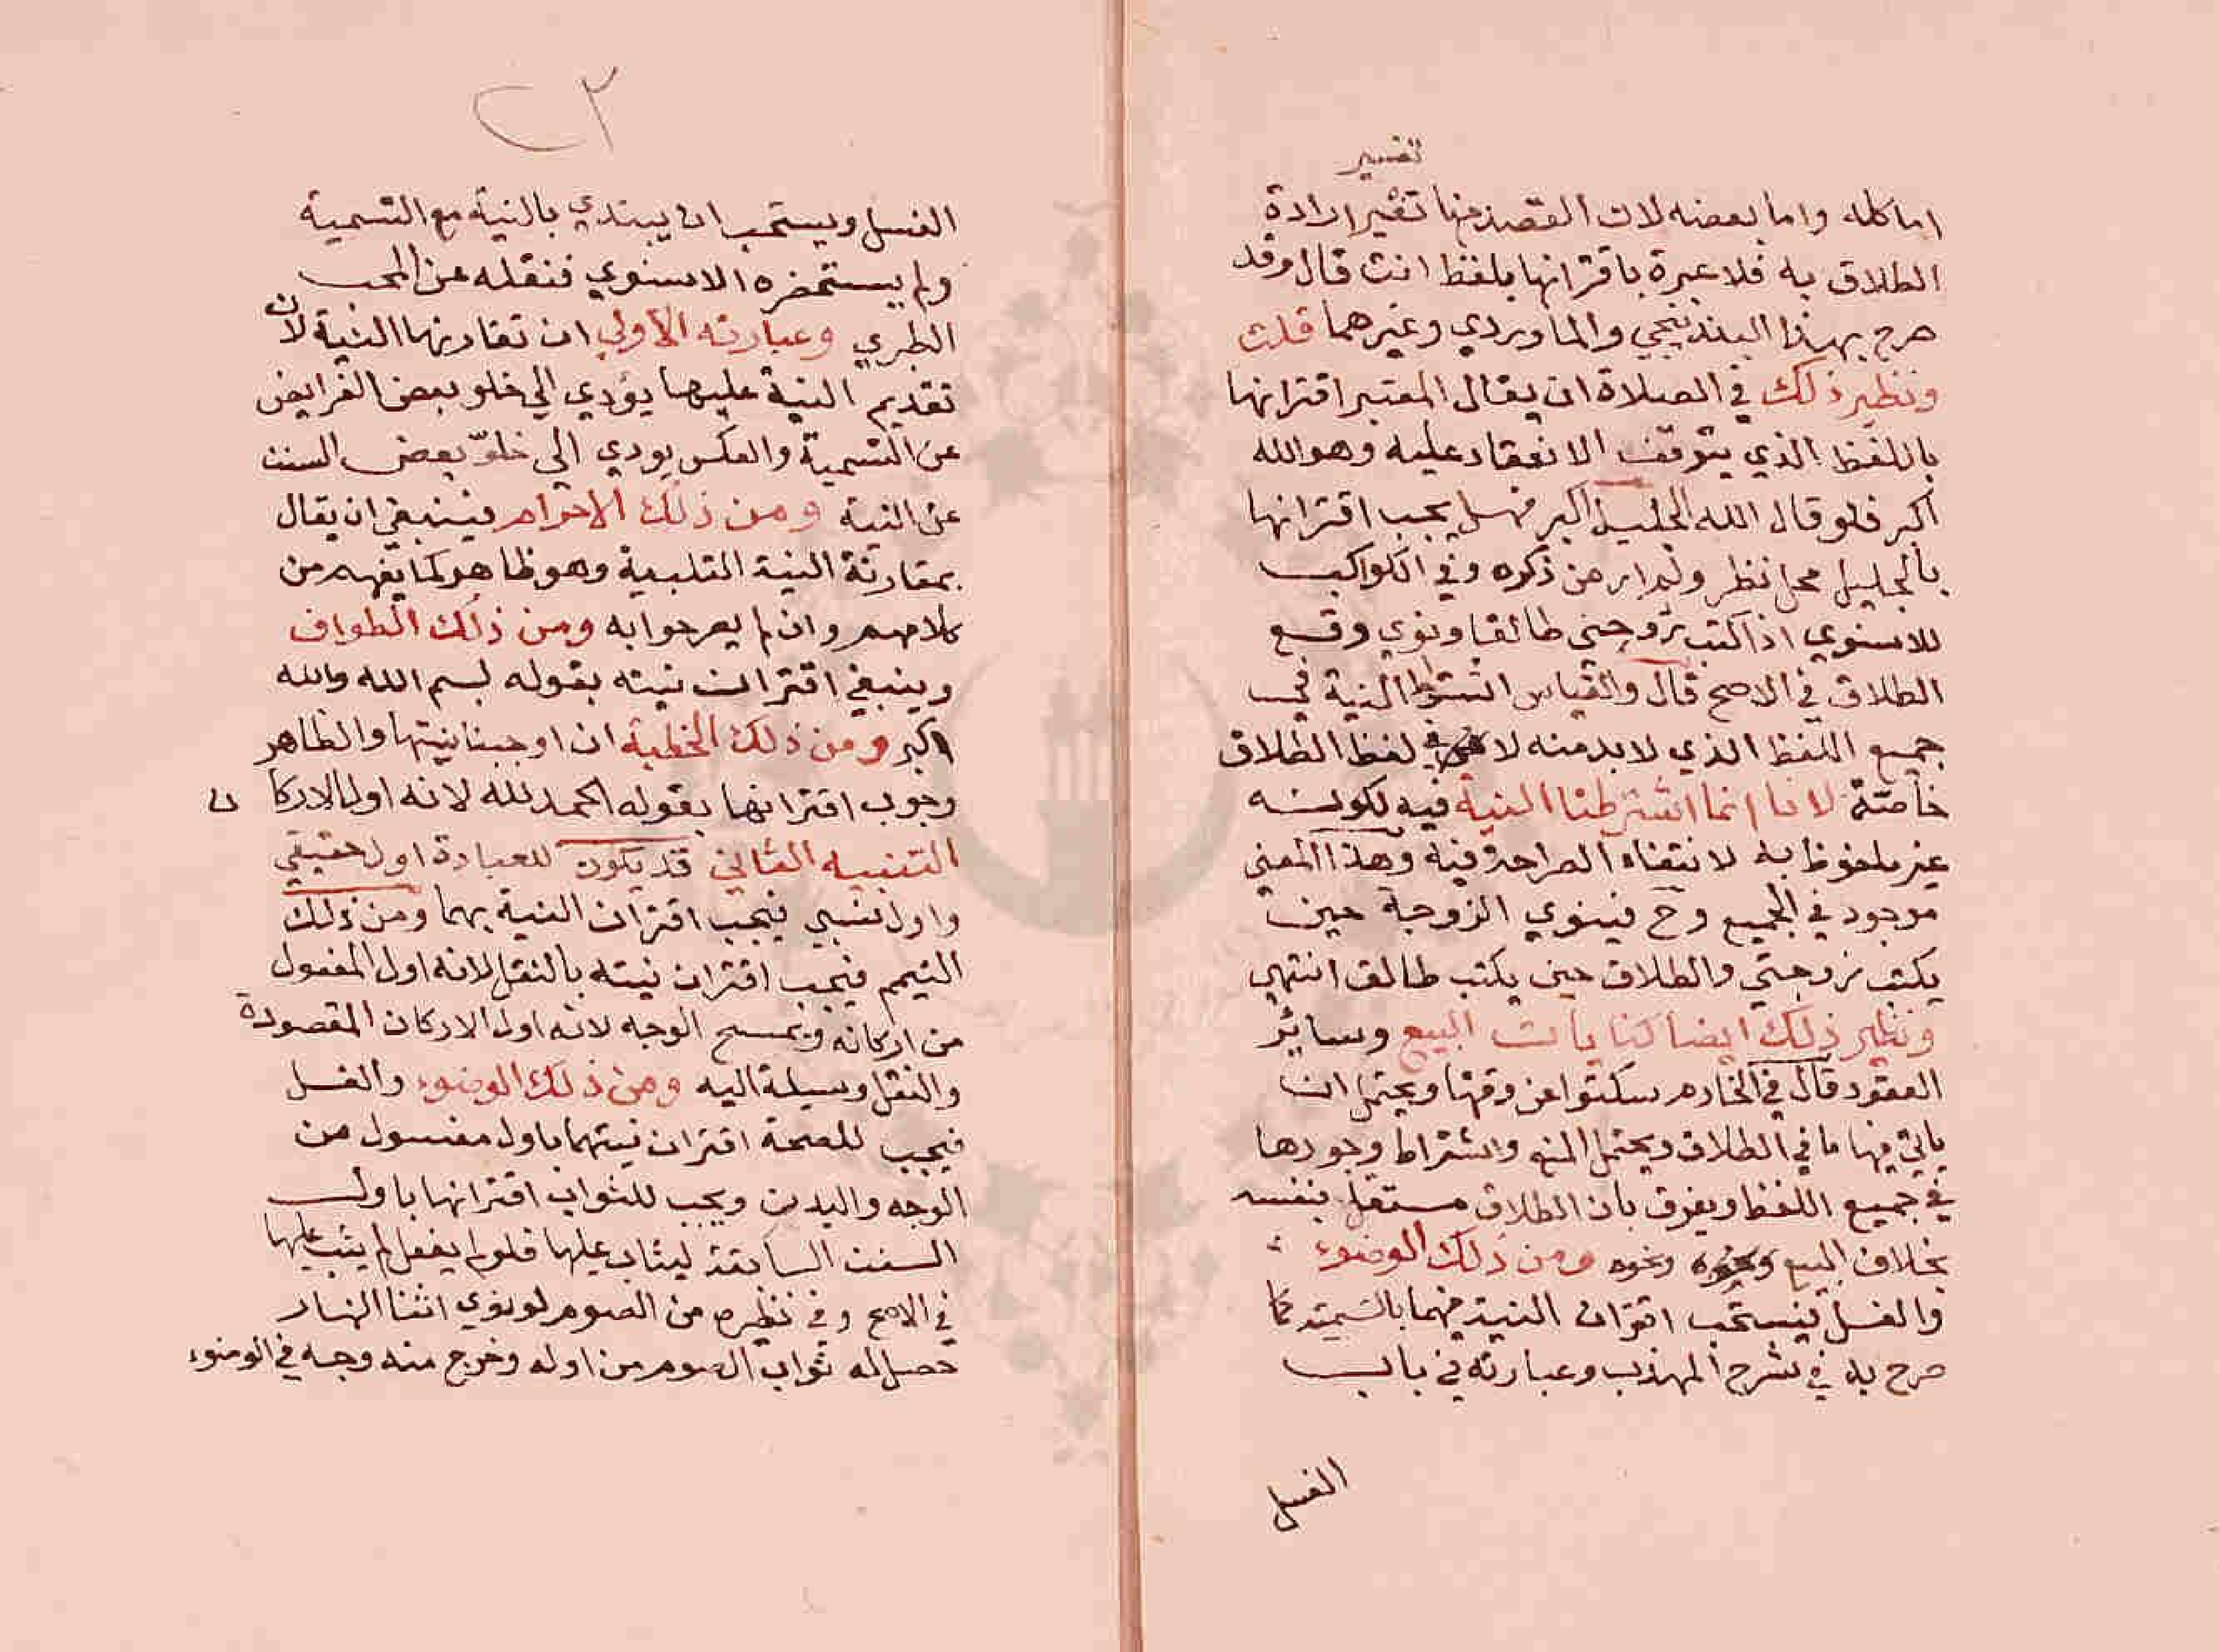 تفسير
اما كله واما بعضه لان القصد منها تفسير ارادة
الطلاق به فلا عبرة باقترانها بلفظ انت قال وقد
صرح بهذا البندنيجي والماوردي وغيرهما قلت
ونظير ذلك في الصلاة ان يقال المعتبر اقترانها
باللفظ الذي يتوقف الانعقاد عليه وهو الله
اكبر فلو قال الله الجليل اكبر فهل يجب اقترانها
بالجليل محل نظر ولم ار من ذكره وفي الكواكب
للاسنوي اذا كتب زوجتي طالق ونوي وقع
الطلاق في الاصح قال والقياس اشتراط النية في
جميع اللفظ الذي لا بد منه لا في لفظ الطلاق
خاصة لانا انما اشترطنا النية فيه لكونه
غير ملفوظ به لانتفاء الصراحة فيه وهذا المعني
موجود في الجميع وح فينوي الزوجة حين
يكتب زوجتي والطلاق حين يكتب طالق انتهي
ونظير ذلك ايضا كنايات البيع وسائر
العقود قال في الخادم سكتوا عن وقتها ويحتمل ان
ياتي فيها ما في الطلاق ويحتمل المنع واشتراط وجودها
في جميع اللفظ ويفرق بان الطلاق مستقل بنفسه
بخلاف البيع ونحوه ومن ذلك الوضوء
والغسل فيستحب اقتران النية فيهما بالتسمية كما
صرح به في شرح المهذب وعبارته في باب
الغسل
٢٣
الغسل ويستحب ان يبتدي بالنية مع التسمية
ولم يستحضره الاسنوي فنقله عن المحب
الطبري وعبارته الاولي ان تقارنها النية لان
تقديم النية عليها يؤدي الي خلو بعض الفرايض
عن التسمية والعكس يودي الي خلو بعض السنن
عن النية ومن ذلك الاحرام فينبغي ان يقال
بمقارنة النية التلبية وهو ظاهر كما يفهم من
كلامهم وان لم يصرحوا به ومن ذلك الطواف
وينبغي اقتران نيته بقوله بسم الله والله
اكبر ومن ذلك الخطبة ان اوجبنا نيتها والظاهر
وجوب اقترانها بقوله الحمد لله لانه اول الاركان
التنبيه الثاني قد يكون للعبادة اول حقيقي
واول نسبي فيجب اقتران النية بهما ومن ذلك
التيمم فيجب اقتران نيته بالنقل لانه اول المفعول
من اركانه وبمسح الوجه لانه اول الاركان المقصودة
والنقل وسيلة اليه ومن ذلك الوضوء والغسل
فيجب للصحة اقتران نيتهما باول مغسول من
الوجه والبدن ويجب للثواب اقترانها باول
السنن السابقة ليثاب عليها فلو لم يفعل لم يثب عليها
في الاصح وفي نظيره من الصوم لو نوي اثنا النهار
حصل له ثواب الصوم من اوله وخرج منه وجه في الوضوء